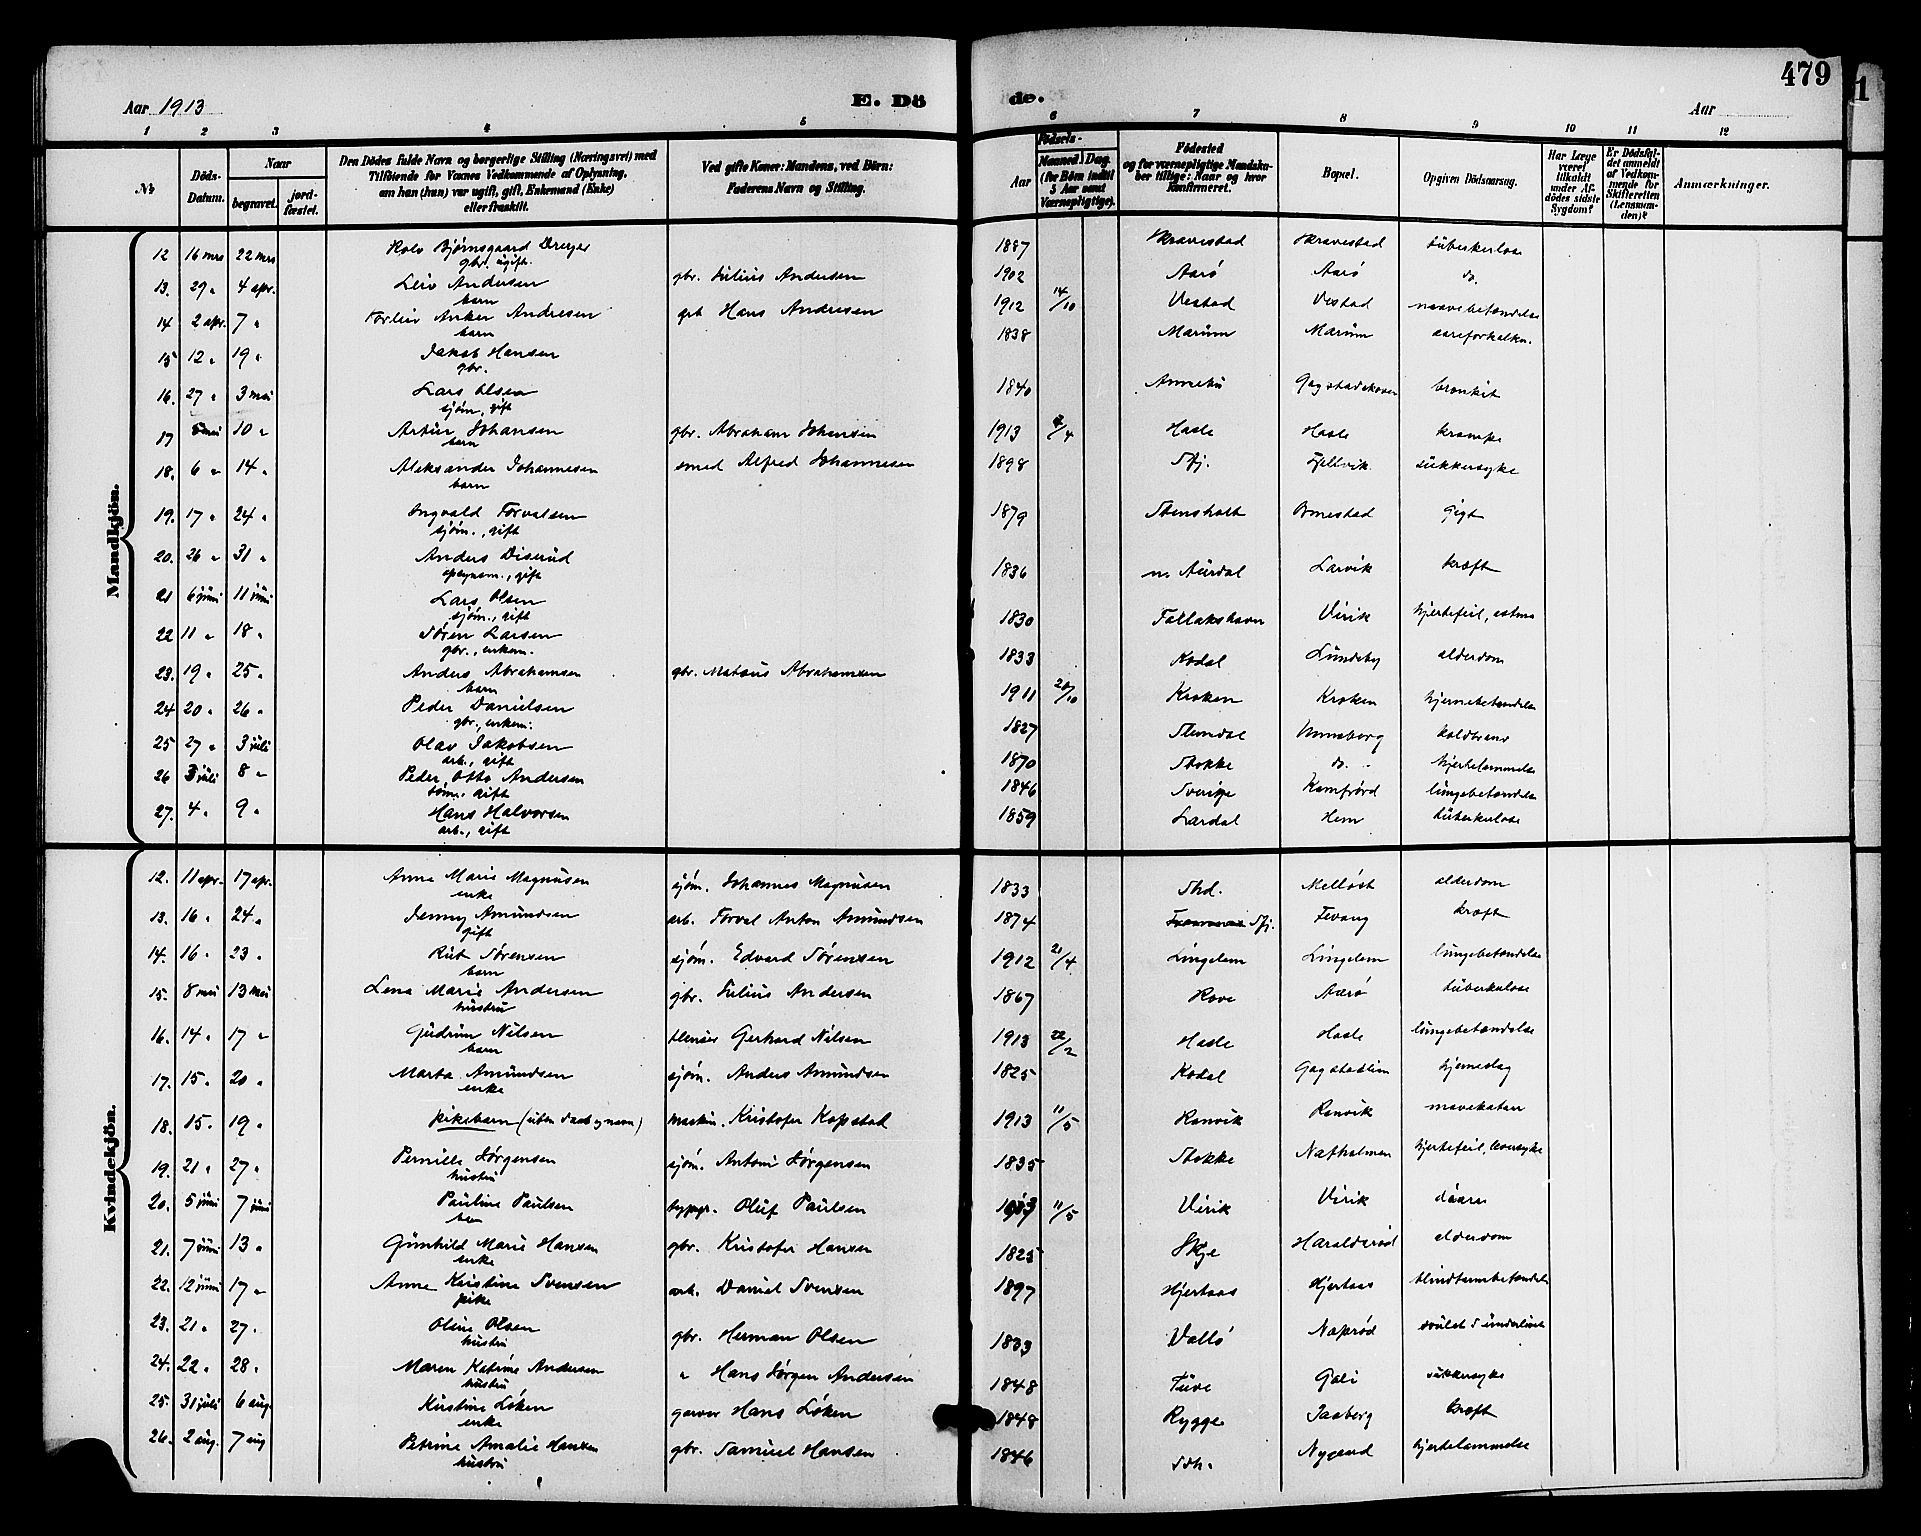 479
Aar 1913 E. Dö de. Aar
1 2 3 4 5 6 7 8 9 10 11 12
No Döds-Datum. Naar begravet. jord-fæstet. Den Dödes fulde Navn og borgerlige Stilling (Næringsvei) med Tilföiende for Voxnes Vedkommende af Oplysning, om han (hun) var ugift, gift, Enkemand (Enke) eller fraskilt. Ved gifte Koner: Mandens, ved Börn: Faderens Navn og Stilling. Födsels- Aar Maaned. Dag. (for Börn indtil 5 Aar samt Værnepligtige). Födested og for værnepligtige Mandskaber tillige: Naar og hvor Konfirmeret. Bopæl. Opgiven Dödsaarsag. Har Læge været tilkaldt under Afdödes sidste Sygdom? Er Dödsfaldet anmeldt af Vedkommende for Skifteretten (Lensmanden)? Anmærkninger.
Mandkjön.
12 16 mrs 22 mrs Rolv Bjørnsgaard Dreyer gbr. ugift. 1887 Skravestad Skravestad tuberkulose
13. 29 " 4 apr. Leiv Andersen barn gbr. Julius Andersen 1902 Aarø Aarø do.
14 2 apr. 7 " Torleiv Anker Andresen barn gbr Hans Andresen 1912 14/10 Vestad Vestad mavebetændelse
15 12 " 19 " Jakob Hansen gbr. 1838 Marum Marum aareforkalkn.
16. 27 " 3 mai Lars Olsen sjøm, gift 1840 Gogstadskoven bronkit
17 5 mai 10 " Artur Johansen barn gbr. Abraham Johansen 1913 Hasle Hasle krampe
18. 6 " 14 " Aleksander Johannesen barn smed Alfred Johannesen 1898 Sfj. Fjellvik sukkersyke
19. 17 " 24 " Ingvald Torvalsen sjøm., gift 1879 Stensholt Ormestad Gigt
20. 26 " 31 " Anders Diserud opsynsm., gift 1836 n. Aurdal Larvik kræft
21 6 juni 11 juni Lars Olsen sjøm., gift 1830 Follakshavn Virik hjertefeil, astma
22 11 " 18 " Søren Larsen gbr., enkem. 1833 Kodal Lundeby alderdom
23. 19 " 25 " Anders Abrahamsen barn gbr. Mataus Abrahamsen 1911 20/10 Kroken Kroken hjernebetændelse
24 20 " 26 " Peder Danielsen gbr., enkem. 1827 Slemdal Unneberg koldbrand
25 27 " 3 juli Olav Jakobsen arb., gift 1870 Stokke do. hjertelammelse
26 3 juli 8 " Peder Otto Andersen tøm., gift 1846 Sverige Kamfjord lungebetændelse
27. 4 " 9 " Hans Halvorsen arb., gift 1859 Lardal Hem tuberkulose
Kvindekjön.
12. 11 apr. 17 apr. Anne Marie Magnusen enke sjøm. Johannes Magnusen 1833 Shd. Melløst alderdom
13. 16 " 24 " Jenny Amundsen gift arb. Torval Anton Amundsen 1874 Sfj. Fevang kræft
14. 16 " 23 " Rut Sørensen barn sjøm. Edvard Sørensen 1912 21/4 Lingelem Lingelem lungebetændelse
15. 8 mai 13 mai Lena Marie Andersen hustru gbr. Julius Andersen 1867 Rove Aarø tuberkulose
16. 14 " 17 " Gudrun Nilsen barn blenser Gerhard Nilsen 1913 22/2 Hasle Hasle lungebetændelse
17. 15 " 20 " Marta Amundsen enke sjøm. Anders Amundsen 1825 Kodal Gogstadlien hjerneslag
18. 15 " 19 " pikebarn (uten daabsnavn) maskin. Kristofer Kopstad 1913 11/5 Ranvik Ranvik mavekatar
19. 21 " 27 " Pernille Jørgensen hustru sjøm. Antoni Jørgensen 1835 Stokke Natholmen hjertefeil, leversyke
20. 5 juni 7 juni Pauline Paulsen barn typogr. Oluf Paulsen 1913 11/5 Virik Virik daare
21. 7 juni 13 " Gunhild Marie Hansen enke gbr. Kristofer Hansen 1825 Skje Haraldsrød alderdom
22. 12 juni 17 " Anne Kristine Svensen pike arb. Daniel Svensen 1897 Hjertaas Hjertaas blindtarmbetændelse
23. 21 " 27 " Oline Olsen hustru gbr. Herman Olsen 1833 Vallø Noprød svulst i underlivet
24. 22 " 28 " Maren Katrine Andersen hustru " Hans Jørgen Andersen 1848 Tuve Goli sukkersyke
25. 31 juli 6 aug. Kirstine Løken enke garver Hans Løken 1848 Rygge Jaaberg kræft
26. 2 aug. 7 aug Petrine Amalie Hansen hustru gbr. Samuel Hansen 1846 Sdh. Nygaard hjertelammelse